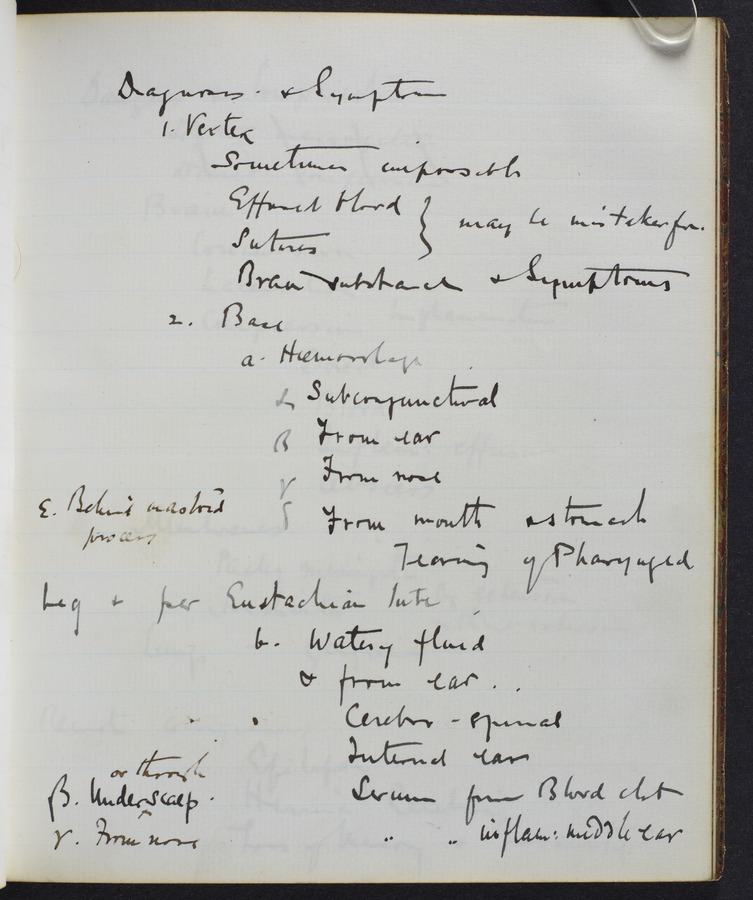 Diagnosis. & Symptom
1. Vertex
Sometimes impossible
Effused blood } may be mistaken for.
Sutures
Brain substance & Symptoms
2. Base
a. Hæmorrhage
α Subconjunctival
β From ear
γ From nose
δ From mouth & stomach
ε. Behind mastoid
process
Tearing of Pharyngeal
& per Eustachian tube
b. Watery fluid
α from ear.
Cerebro-spinal
Internal ear
or through
β. Under scalp.
Serum from Blood clot
γ. From nose
" " inflam: middle ear